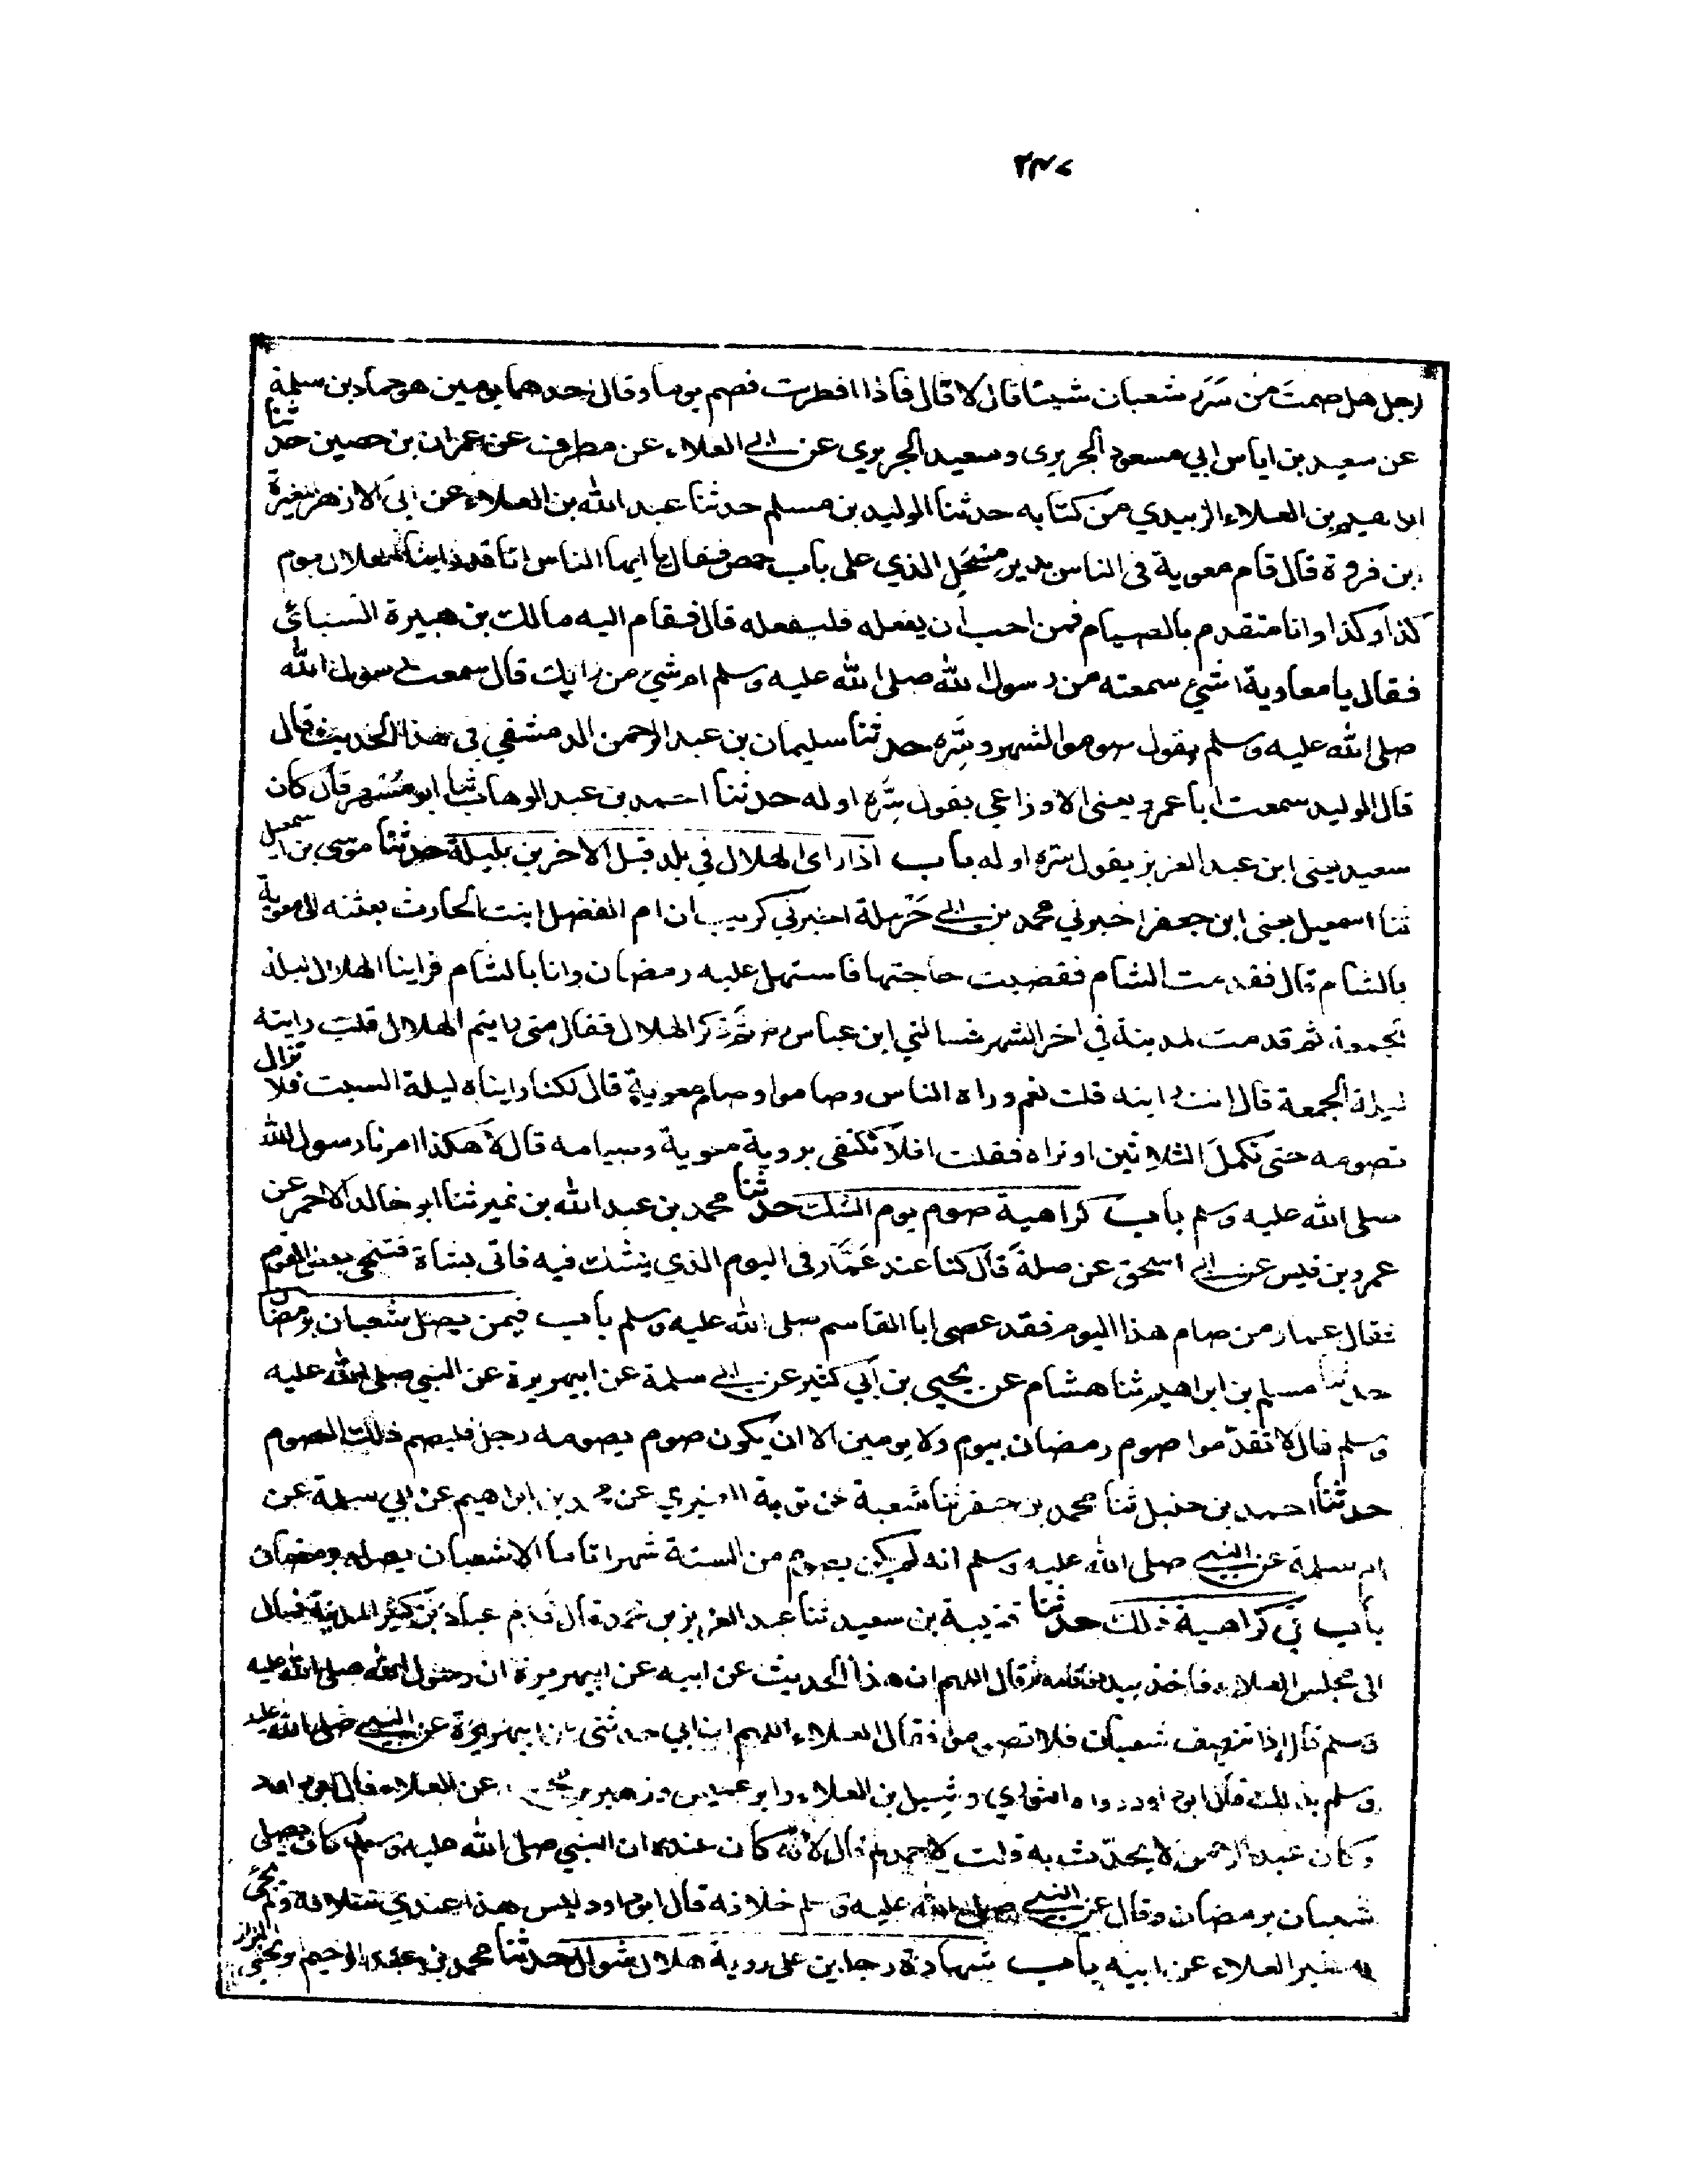 ٢٣٧
رجل هل صمت من سرر شعبان شيئا قال لا قال فاذا افطرت فصم يوما وقال احدهما يومين هو حماد بن سلمة
عن سعيد بن اياس ابي مسعود الجريري وسعيد الجريري عن ابي العلاء عن مطرف عن عمران بن حصين حدثنا
ابراهيم بن العلاء الزبيدي من كتابه حدثنا الوليد بن مسلم حدثنا عبد الله بن العلاء عن ابي الازهر مغيرة
بن فروة قال قام معوية في الناس بدير مسحل الذي على باب حمص فقال يا ايها الناس انا قد راينا الهلال يوم
كذا وكذا وانا متقدم بالصيام فمن احب ان يفعله فليفعله قال فقام اليه مالك بن هبيرة السبائي
فقال يا معاوية اشئ سمعته من رسول الله صلى الله عليه وسلم ام شئ من رايك قال سمعت رسول الله
صلى الله عليه وسلم يقول صوموا الشهر وسره حدثنا سليمان بن عبد الرحمن الدمشقي في هذا الحديث قال
قال الوليد سمعت ابا عمرو يعني الاوزاعي يقول سره اوله حدثنا احمد بن عبد الوهاب ثنا ابو مسهر قال كان
سعيد يعني ابن عبد العزيز يقول سره اوله باب اذا راى الهلال في بلد قبل الاخرين بليلة حدثنا موسى بن اسمعيل
ثنا اسمعيل يعني ابن جعفر اخبرني محمد بن ابي حرملة اخبرني كريب ان ام الفضل ابنت الحارث بعثته الى معوية
بالشام قال فقدمت الشام فقضيت حاجتها فاستهل عليه رمضان وانا بالشام فراينا الهلال ليلة
الجمعة ثم قدمت المدينة في اخر الشهر فسالني ابن عباس ثم ذكر الهلال فقال متى رايتم الهلال قلت رايته
ليلة الجمعة قال انت رايته قلت نعم وراه الناس وصاموا وصام معوية قال لكنا رايناه ليلة السبت فلا نزال
نصومه حتى نكمل الثلاثين او نراه فقلت افلا تكتفي بروية معوية وصيامه قال لا هكذا امرنا رسول الله
صلى الله عليه وسلم باب كراهية صوم يوم الشك حدثنا محمد بن عبد الله بن نمير ثنا ابو خالد الاحمر عن
عمرو بن قيس عن ابي اسحق عن صلة قال كنا عند عمار في اليوم الذي يشك فيه فاتى بشاة فتنحى بعض القوم
فقال عمار من صام هذا اليوم فقد عصى ابا القاسم صلى الله عليه وسلم باب فيمن يصل شعبان برمضان
حدثنا مسلم بن ابراهيم ثنا هشام عن يحيى بن ابي كثير عن ابي سلمة عن ابيهريرة عن النبي صلى الله عليه
وسلم قال لا تقدموا صوم رمضان بيوم ولا يومين الا ان يكون صوم يصومه رجل فليصم ذلك الصوم
حدثنا احمد بن حنبل ثنا محمد بن جعفر ثنا شعبة عن توبة العنبري عن محمد بن ابراهيم عن ابي سلمة عن
ام سلمة عن النبي صلى الله عليه وسلم انه لم يكن يصوم من السنة شهرا تاما الا شعبان يصله برمضان
باب في كراهية ذلك حدثنا قتيبة بن سعيد ثنا عبد العزيز بن محمد قال قدم عباد بن كثير المدينة فمال
الى مجلس العلاء فاخذ بيده فاقامه ثم قال اللهم ان هذا الحديث عن ابيه عن ابيهريرة ان رسول الله صلى الله عليه
وسلم قال اذا تنصف شعبان فلا تصوموا فقال العلاء اللهم ان ابي حدثني عن ابيهريرة عن النبي صلى الله عليه
وسلم بذلك قال ابو داود رواه الثوري وشبل بن العلاء وابو عميس وزهير بن محمد عن العلاء قال ابو داود
وكان عبد الرحمن لا يحدث به قلت لاحمد لم قال لانه كان عنده ان النبي صلى الله عليه وسلم كان يصل
شعبان برمضان وقال عن النبي صلى الله عليه وسلم خلافه قال ابو داود ليس هذا عندي خلافه ولم يجئ
به غير العلاء عن ابيه باب شهادة رجلين على روية هلال شوال حدثنا محمد بن عبد الرحيم ابو يحيى البزاز